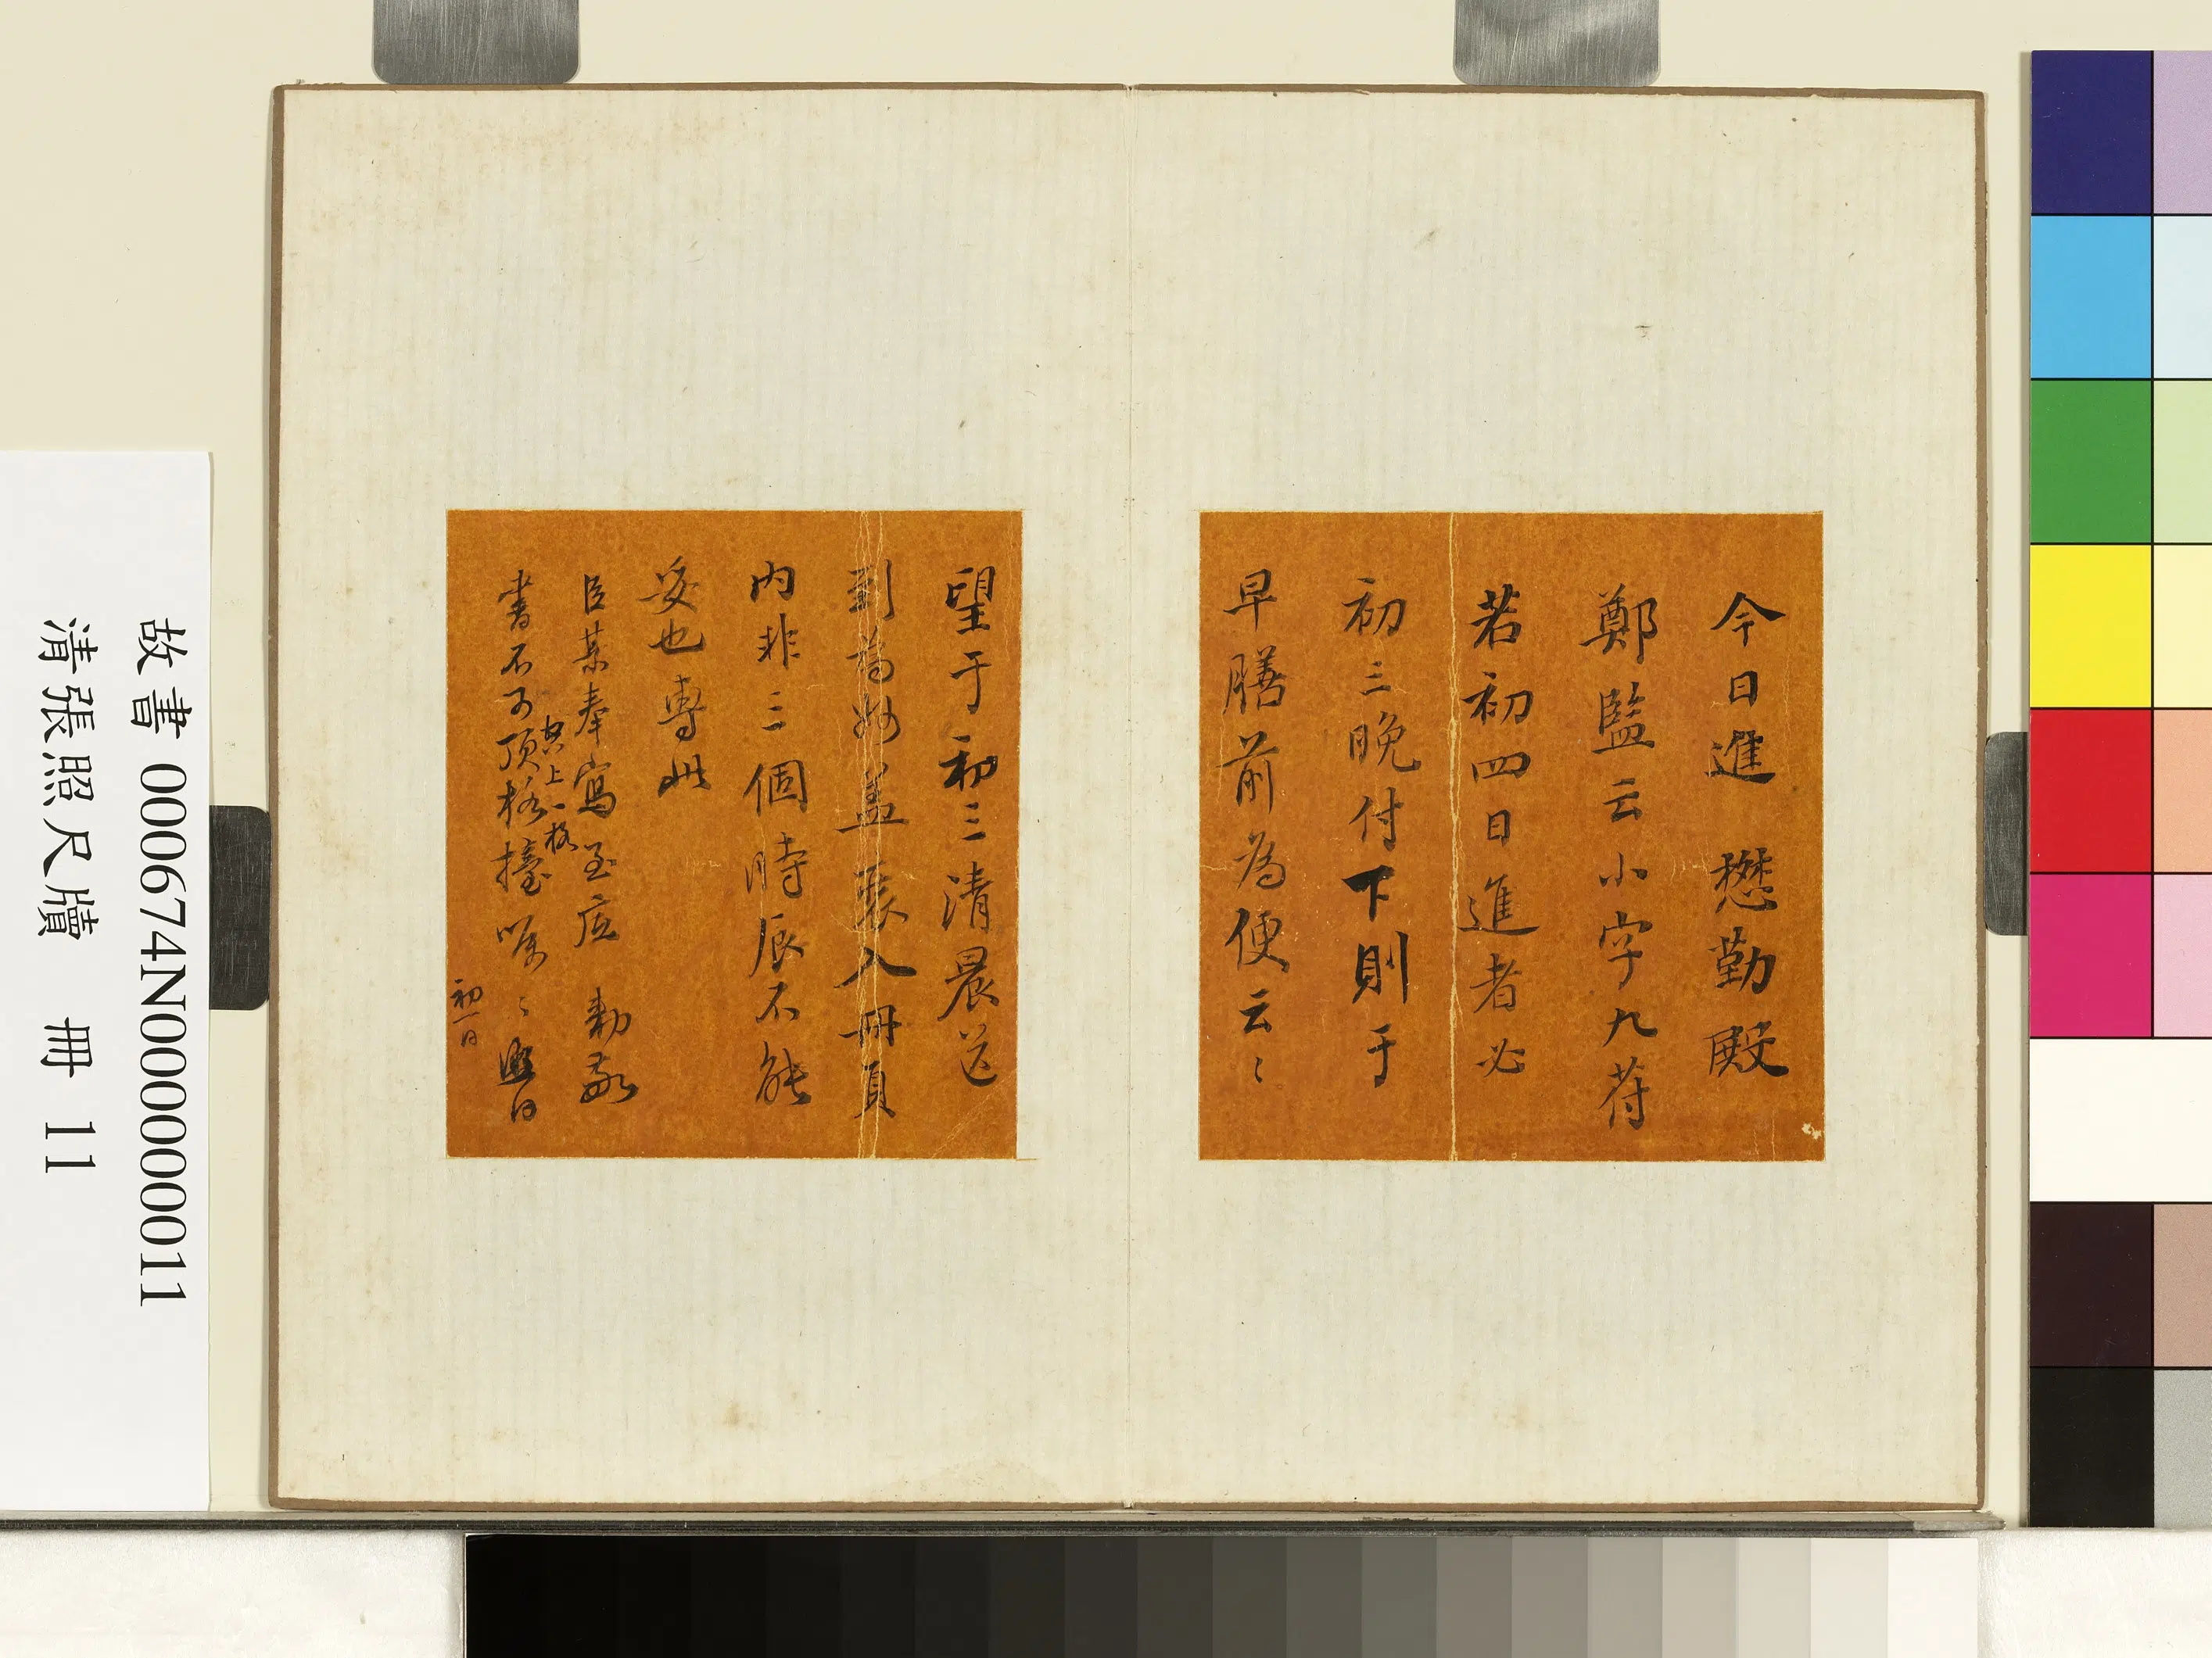 今日進 懋勤殿
鄭監云小字九荷
若初四日進者必
初三晚付下則于
早膳前為便云〻
望于初三清晨送
到為妙蓋裝入冊頁
內非三個時辰不能
妥也專此
臣某奉 寫至底 勅敬
書不可頂格擡嘱〻 照白
空上一格
初一日
故書000674N000000011
清張照尺牘 冊 11